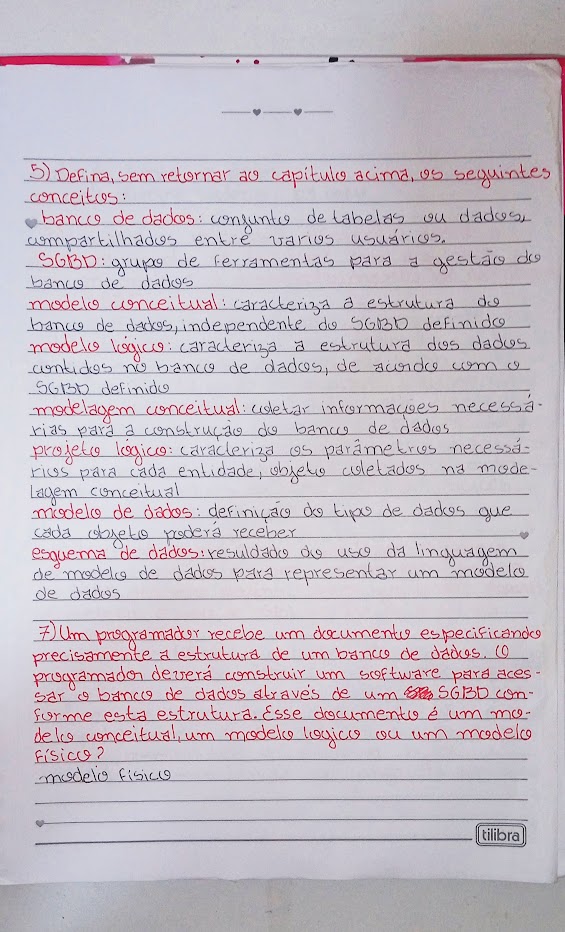 5) Defina, sem retornar ao capítulo acima, os seguintes
conceitos:
banco de dados: conjunto de tabelas ou dados,
compartilhados entre varios usuários.
SGBD: grupo de ferramentas para a gestão do
banco de dados
modelo conceitual: caracteriza a estrutura do
banco de dados, independente do SGBD definido
modelo lógico: caracteriza a estrutura dos dados
contidos no banco de dados, de acordo com o
SGBD definido
modelagem conceitual: coletar informações necessá-
rias para a construção do banco de dados
projeto lógico: caracteriza os parâmetros necessá-
rios para cada entidade, objeto coletados na mode-
lagem conceitual
modelo de dados: definição do tipo de dados que
cada objeto poderá receber
esquema de dados: resuldado do uso da linguagem
de modelo de dados para representar um modelo
de dados
7) Um programador recebe um documento especificando
precisamente a estrutura de um banco de dados. O
programador deverá construir um software para aces-
sar o banco de dados através de um SGBD con-
forme esta estrutura. Esse documento é um mo-
delo conceitual, um modelo logico ou um modelo
físico?
modelo fisico
tilibra